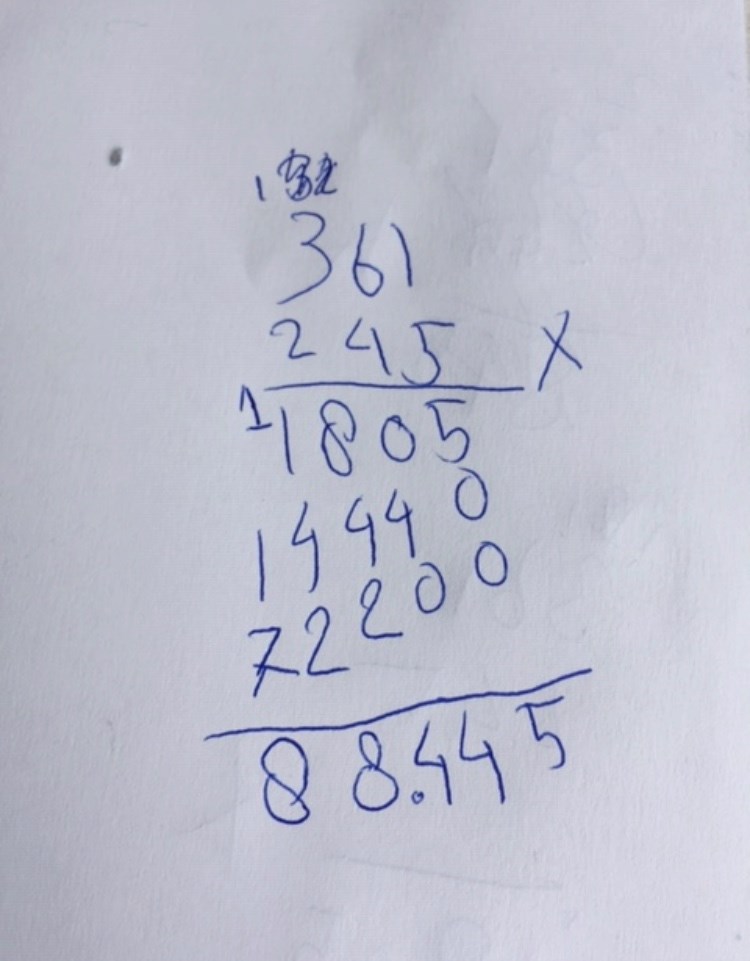 361
245 X
1
1805
14440
72200
88.445